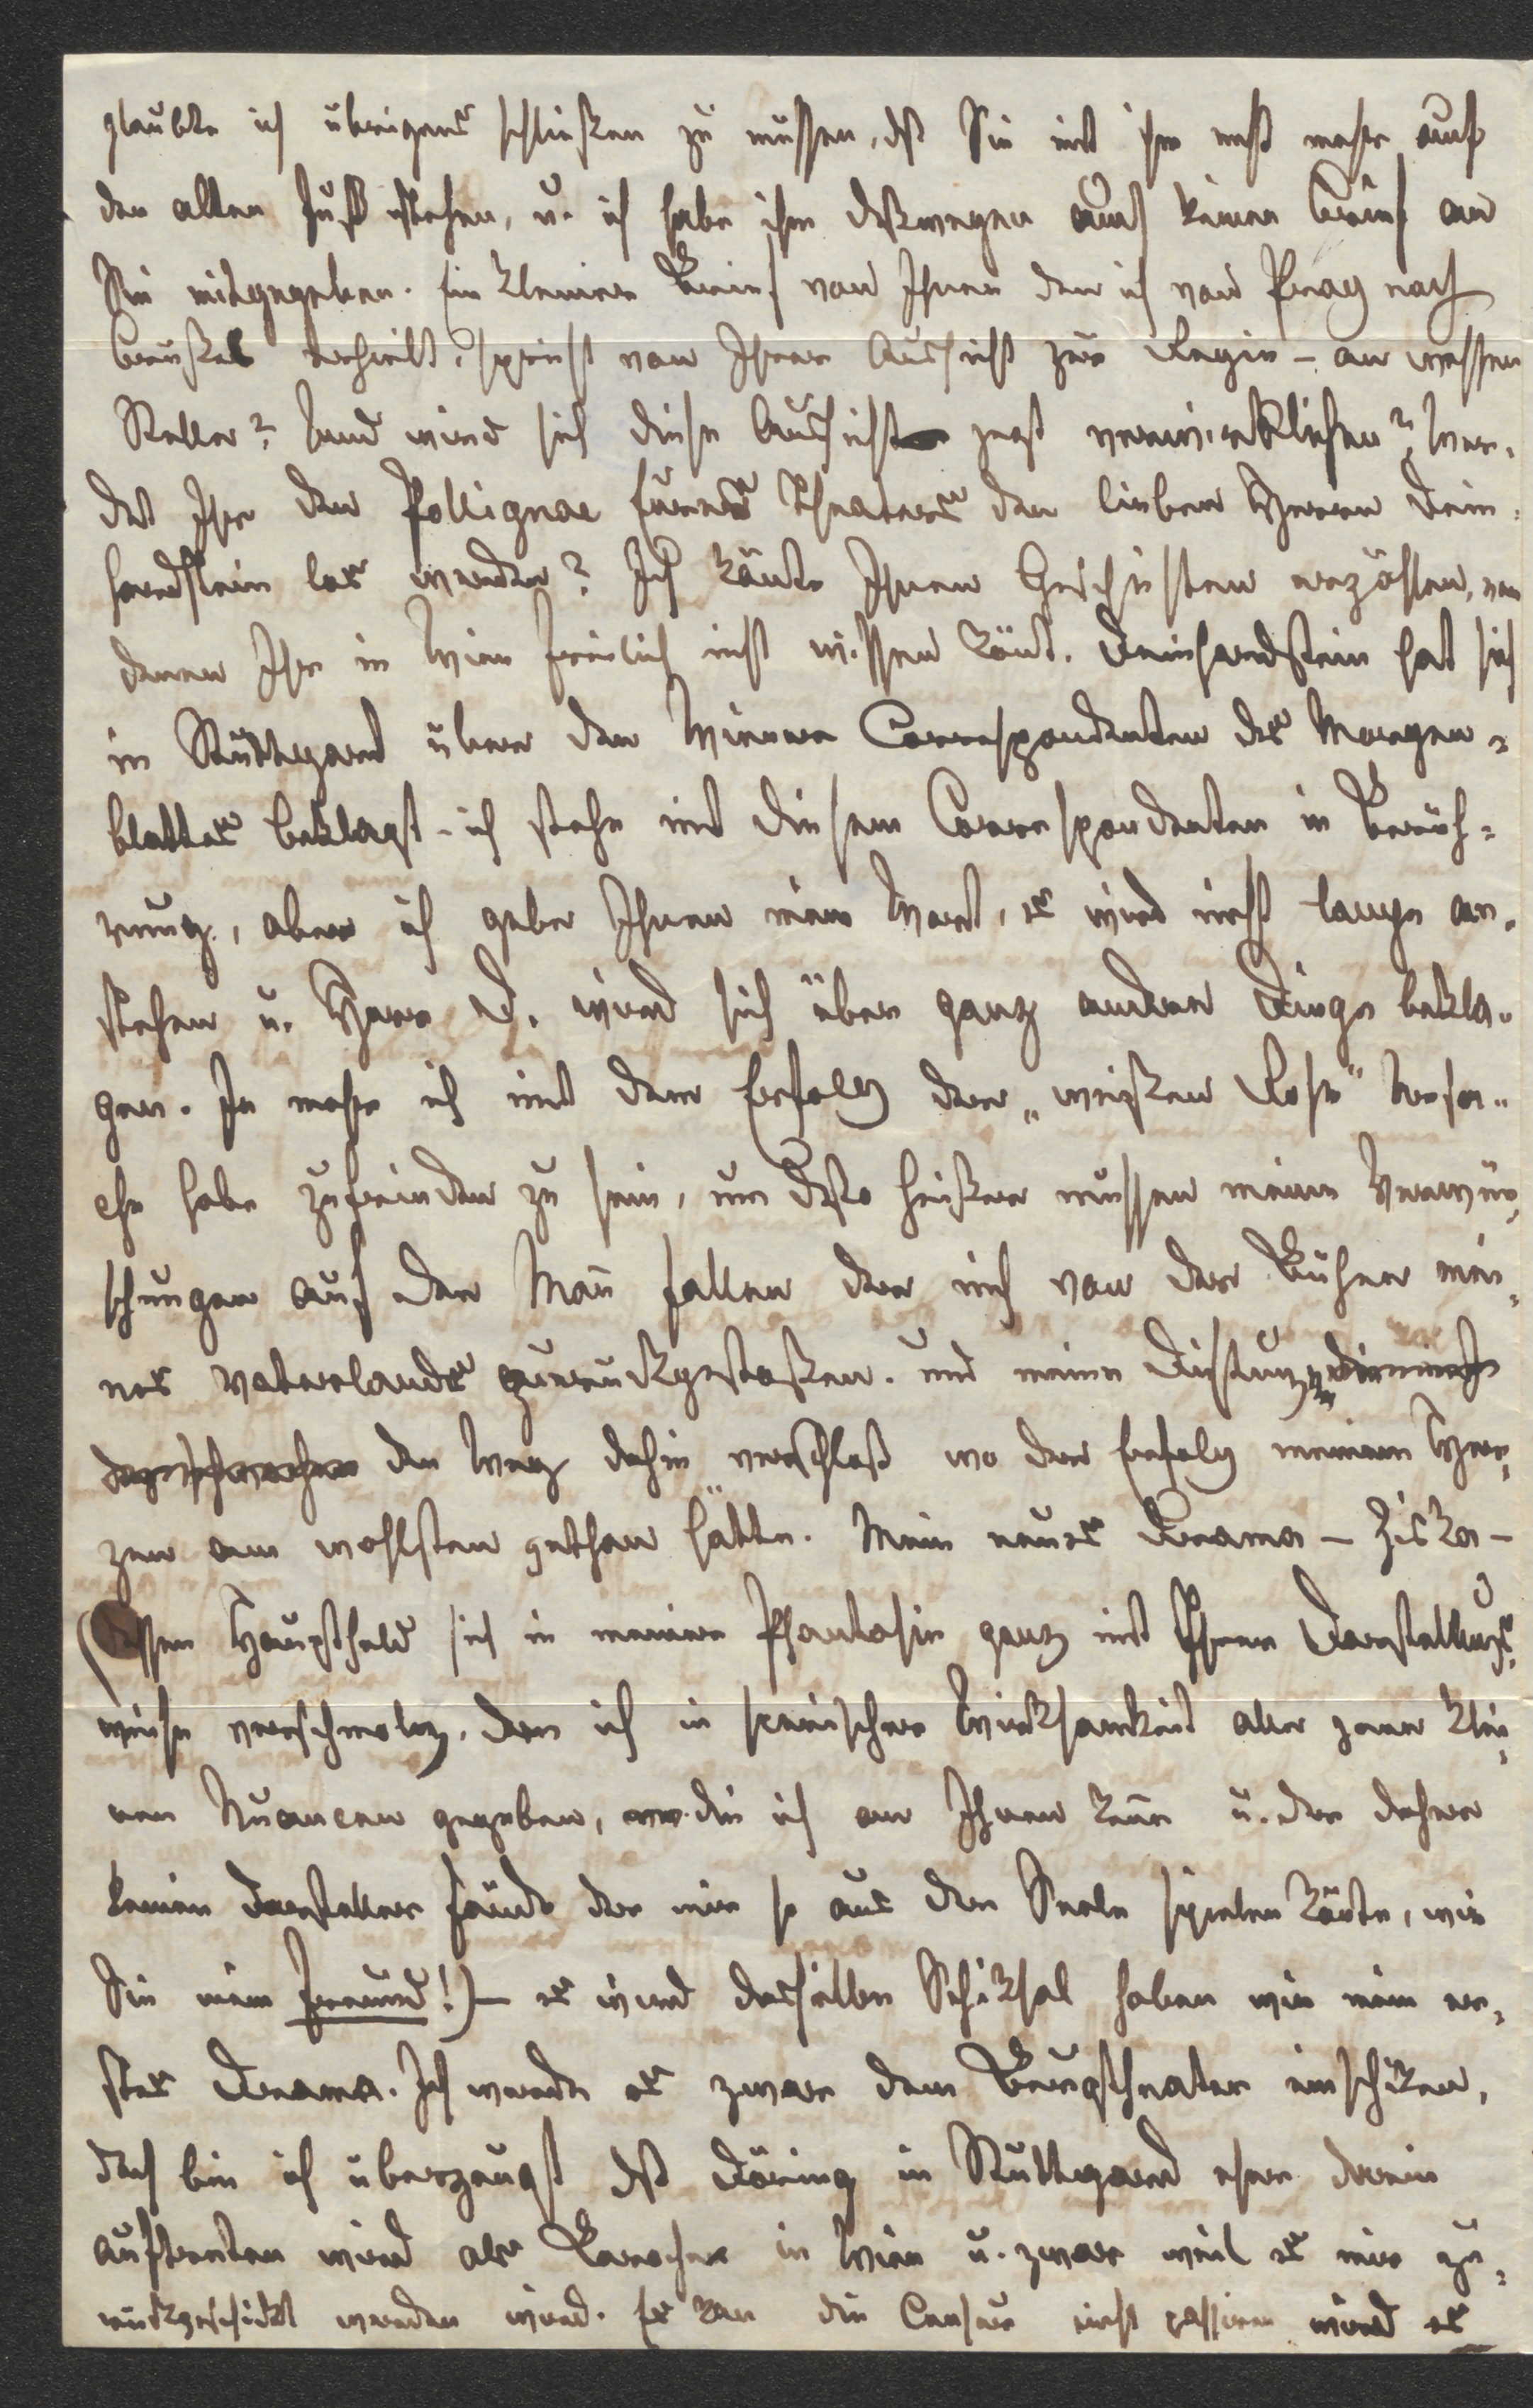 glaubte ich übrigens schließen zu müssen, dß Sie mit ihm nicht mehr auf
den alten Fuß stehen, u. ich habe ihm deßwegen auch keinen Brief an
Sie mitgegeben. Ein kleiner Brief von Ihnen den ich von Prag nach
Brüßel erhielt, spricht von Ihrer Aussicht zur Regie – an wessen
Stelle? Und wird sich diese Aussicht jezt verwirklichen? Wer-
det Ihr den Pollignac Eures Theaters den lieben Herrn Dein-
hardstein los werden? Ich könte Ihnen Geschichten erzählen, von
denen Ihr in Wien freilich nicht wissen könt. Deinhardstein hat sich
in Stuttgard über den Wiener Correspondenten des Morgen-
blattes beklagt – ich stehe mit diesem Correspondenten in Berüh-
rung, aber ich gebe Ihnen mein Wort, es wird nicht lange an-
stehen u. Herr D. wird sich über ganz andere Dinge bekla-
gen. Je mehr ich mit dem Erfolg der „weißen Rose" Ursa-
che habe zufrieden zu sein, um desto heißer müssen meine Verwün-
schungen auf den Man̄ fallen der mich von der Bühne mei-
nes Vaterlandes zurückgestoßen. und meinen Dichtungen
den Weg dahin verschloß wo der Erfolg meinem Her-
zen am wohlsten gethan hätte. Mein neues Drama – Ziska –
(dessen Hauptheld sich in meiner Phantasie ganz mit Ihrer Darstellungs-
weise verschmolz, dem ich in scenischer Wirksamkeit alle jene klei-
nen Nuancen gegeben, die ich an Ihnen kenne u. der daher
keinen Darsteller fände der mir so aus der Seele spielen könte, wie
Sie mein Freund!) – es wird dasselbe Schiksal haben wie mein er-
stes Drama. Ich werde es zwar dem Burgtheater einschiken,
doch bin ich überzeugt dß Döring in Stuttgard eher darin
auftreten wird als Laroche in Wien u. zwar weil es mir zu-
rückgeschickt werden wird. Es kan die Censur nicht passiren wird es